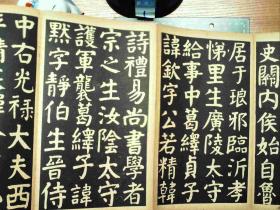 史關內侯始自魯
居于琅邪臨沂孝
悌里生廣陵太守
給事中葛繹貞子
諱欽字公若精韓
詩禮易尚書學者
宗之生汝陰太守
護軍襲葛繹子諱
默字靜伯生晉侍
中右光祿大夫西